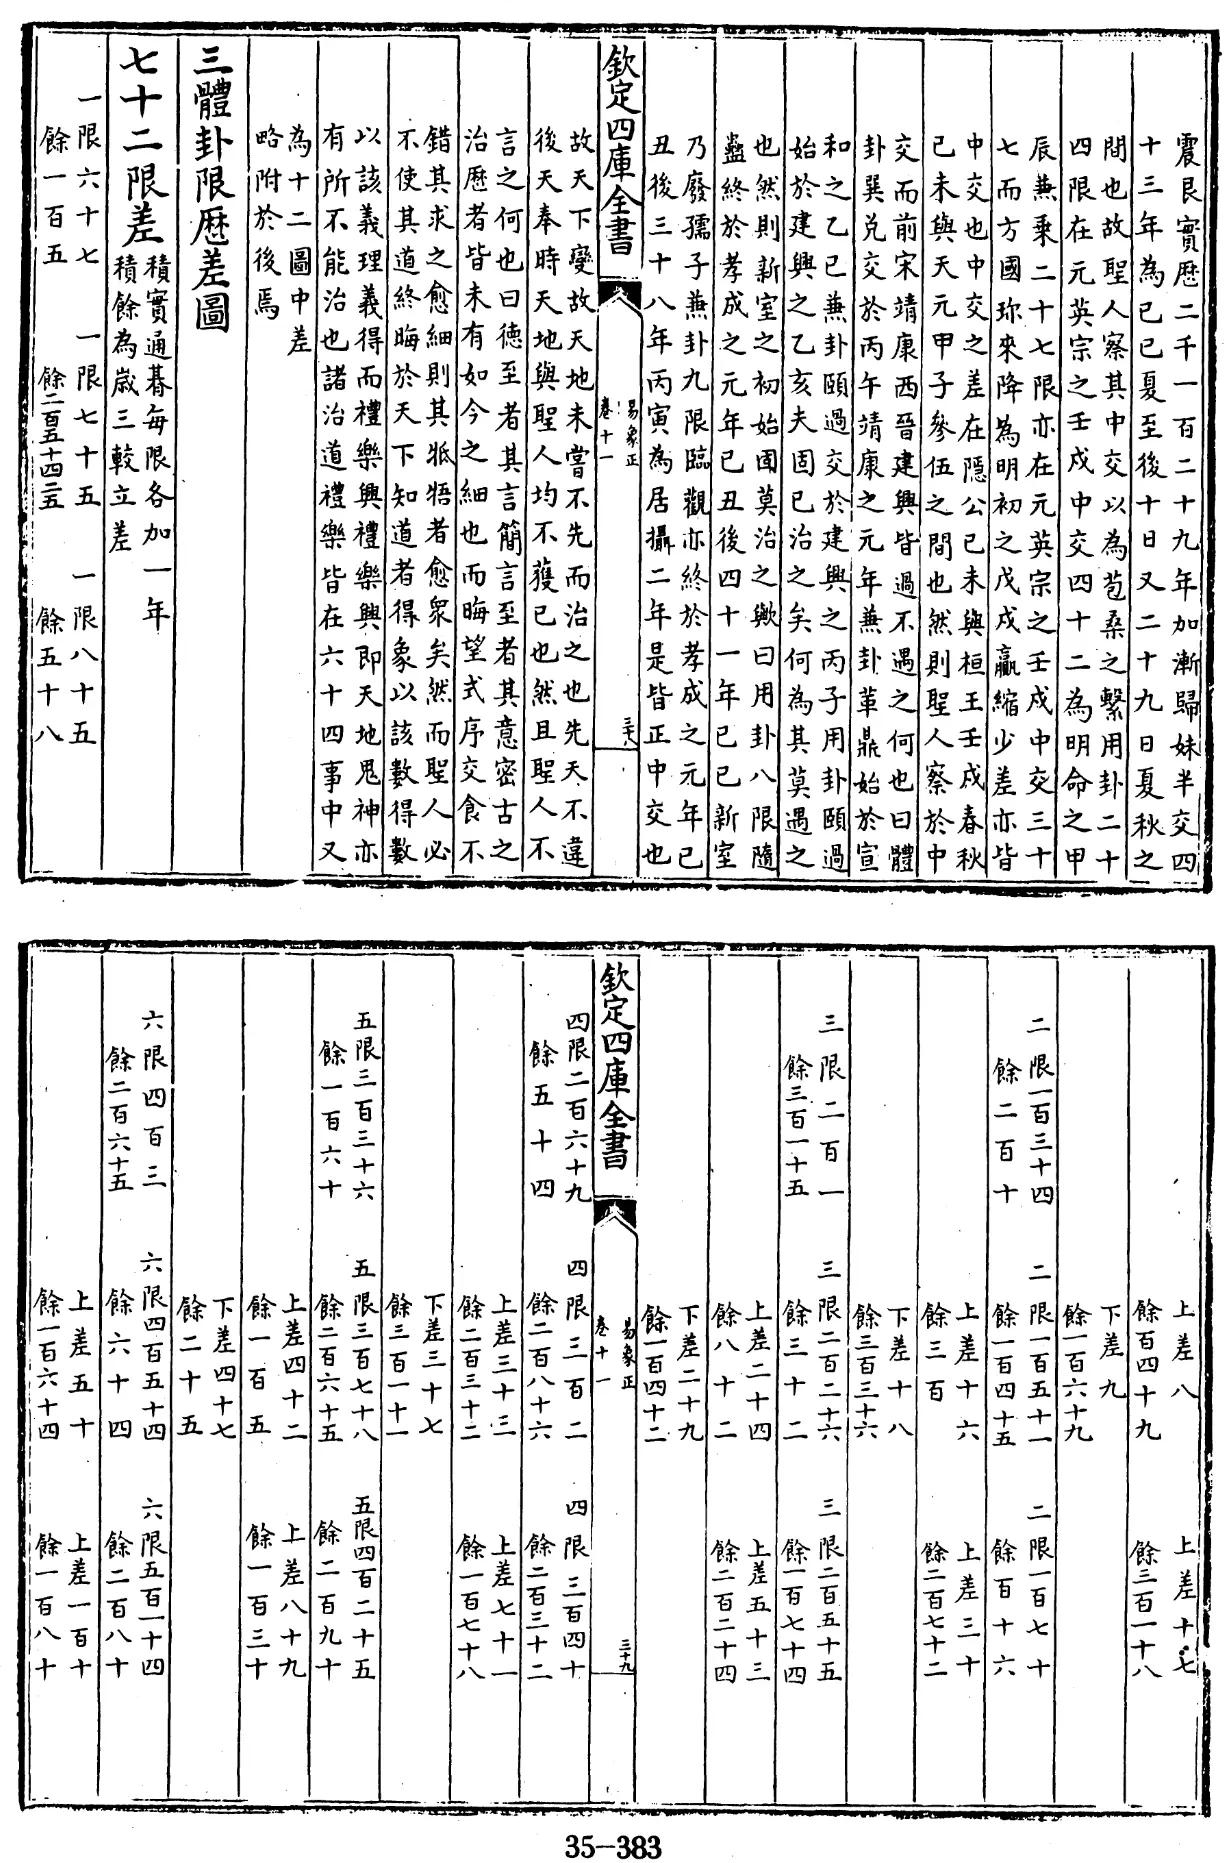 震艮實歷二千一百二十九年加漸歸妹半交四
十三年為己巳夏至後十日又二十九日夏秋之
間也故聖人察其中交以為苞桑之繫用卦二十
四限在元英宗之壬戌中交四十二為明命之甲
辰兼乘二十七限亦在元英宗之壬戌中交三十
七而方國珍來降為明初之戊戌贏縮少差亦皆
中交也中交之差在隱公己未與桓王壬戌春秋
己未與天元甲子參伍之間也然則聖人察於中
交而前宋靖康西晉建興皆過不遇之何也曰體
卦巽兌交於丙午靖康之元年兼卦革鼎始於宣
和之乙巳兼卦頤過交於建興之丙子用卦頤過
始於建興之乙亥夫固已治之矣何為其莫遇之
也然則新室之初始固莫治之歟曰用卦八限隨
蠱終於孝成之元年己丑後四十一年己巳新室
乃廢孺子兼卦九限臨觀亦終於孝成之元年己
丑後三十八年丙寅為居攝二年是皆正中交也
欽定四庫全書
易象正
卷十一
三十八
故天下變故天地未嘗不先而治之也先天不違
後天奉時天地與聖人均不獲已也然且聖人不
言之何也曰德至者其言簡言至者其意密古之
治歷者皆未有如今之細也而晦望式序交食不
錯其求之愈細則其牴牾者愈衆矣然而聖人必
不使其道終晦於天下知道者得象以該數得數
以該義理義得而禮樂興禮樂興即天地鬼神亦
有所不能治也諸治道禮樂皆在六十四事中又
為十二圖中差
略附於後焉
三體卦限歷差圖
七十二限差
積實通朞每限各加一年
積餘為歲三較立差
一限六十七 一限七十五 一限八十五
餘一百五 餘二百五十四二五 餘五十八
上差八 上差十七
餘百四十九 餘三百一十八
下差九
餘一百六十九
二限一百三十四 二限一百五十一 二限一百七十
餘二百十 餘一百四十五 餘百十六
上差十六 上差三十
餘三百 餘二百七十二
下差十八
餘三百三十六
三限二百一 三限二百二十六 三限二百五十五
餘三百一十五 餘三十二 餘一百七十四
上差二十四 上差五十三
餘八十二 餘二百二十四
下差二十九
餘一百四十二
欽定四庫全書
易象正
卷十一
三十九
四限二百六十九 四限三百二 四限三百四十
餘五十四 餘二百八十六 餘二百三十二
上差三十三 上差七十一
餘二百三十二 餘一百七十八
下差三十七
餘三百一十一
五限三百三十六 五限三百七十八 五限四百二十五
餘一百六十 餘二百六十五 餘二百九十
上差四十二 上差八十九
餘一百五 餘一百三十
下差四十七
餘二十五
六限四百三 六限四百五十四 六限五百一十四
餘二百六十五 餘六十四 餘二百八十
上差五十 上差一百十
餘一百六十四 餘一百八十
35-383